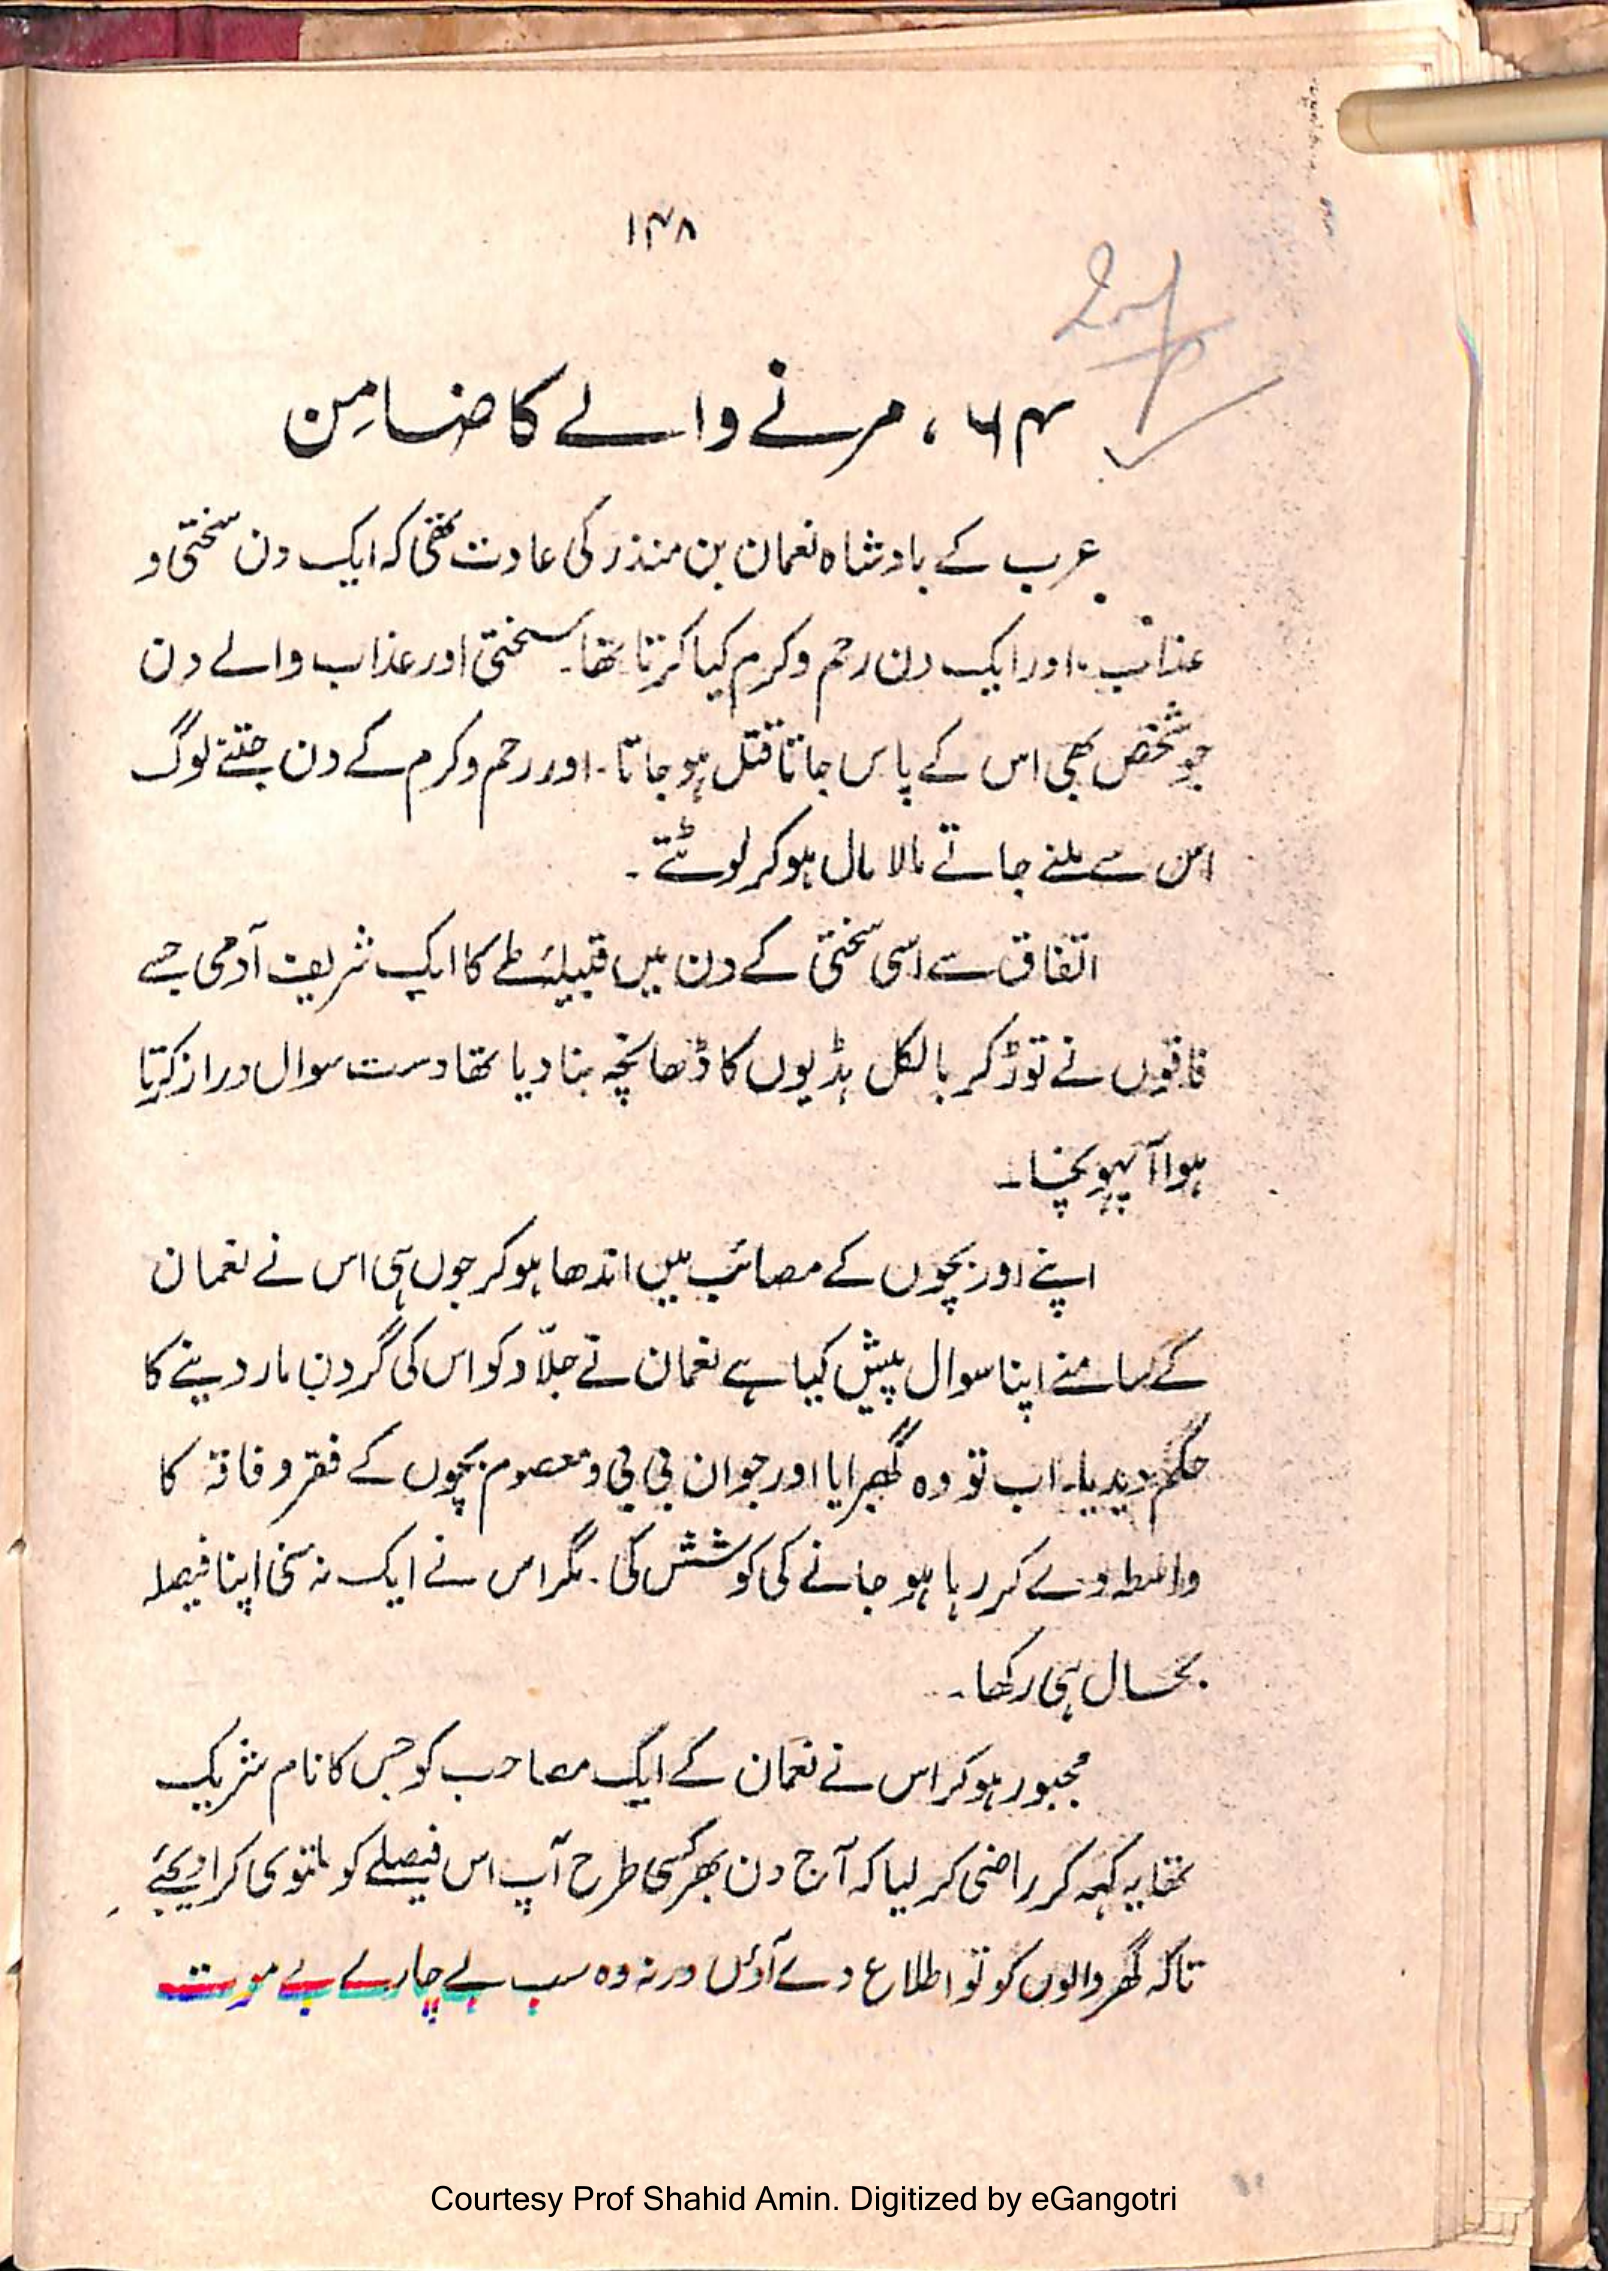 ۱۴۸
۶۴، مرنے والے کا ضامِن
عرب کے بادشاہ نعمان بن منذر کی عادت تھی کہ ایک دن سختی و
عذاب، اور ایک دن رحم و کرم کیا کرتا تھا۔ سختی اور عذاب والے دن
جو شخص بھی اس کے پاس جاتا قتل ہو جاتا۔ اور رحم و کرم کے دن جتنے لوگ
اس سے ملنے جاتے مالا مال ہو کر لوٹتے۔
اتفاق سے اسی سختی کے دن میں قبیلۂ طے کا ایک شریف آدمی جسے
فاقوں نے توڑ کر بالکل ہڈیوں کا ڈھانچہ بنا دیا تھا دست سوال دراز کرتا
ہوا آ پہونچا۔
اپنے اور بچوں کے مصائب میں اندھا ہو کر جوں ہی اس نے نعمان
کے سامنے اپنا سوال پیش کیا ہے نعمان نے جلّاد کو اس کی گردن مار دینے کا
حکم دیدیا۔ اب تو وہ گھبرایا اور جوان بی بی و معصوم بچوں کے فقر و فاقہ کا
واسطہ دے کر رہا ہو جانے کی کوشش کی۔ مگر اس نے ایک نہ سنی اپنا فیصلہ
بحال ہی رکھا۔
مجبور ہو کر اس نے نعمان کے ایک مصاحب کو جس کا نام شریک
تھا یہ کہہ کر راضی کر لیا کہ آج دن بھر کسی طرح آپ اس فیصلے کو ملتوی کرا دیجئے
تاکہ گھر والوں کو تو اطلاع دے آؤں ورنہ وہ سب بے چارے بے موت
Courtesy Prof Shahid Amin. Digitized by eGangotri